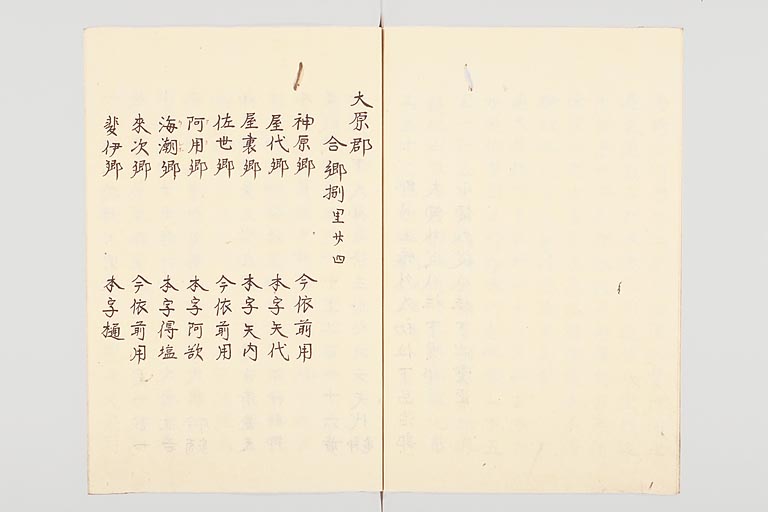 大原郡
合郷捌里廿四
神原郷 今依前用
屋代郷 本字矢代
屋裏郷 本字矢内
佐世郷 今依前用
阿用郷 本字阿欲
海潮郷 本字得塩
來次郷 今依前用
斐伊郷 本字樋